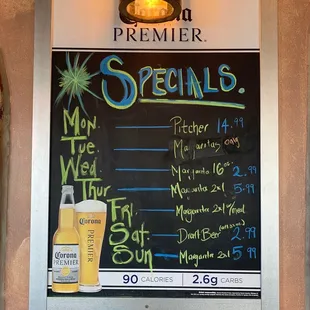 Corona
PREMIER.
SPECIALS.
Mon. Pitcher 14.99
Tue. Margaritas only
Wed. Margarita 16oz. 2.99
Thur Margarita 2x1 5.99
Fri. Margarita 2x1
Sat. Draft Beer 2.99
Sun Margarita 2x1 5.99
Corona
PREMIER
Corona
PREMIER
90 CALORIES 2.6g CARBS